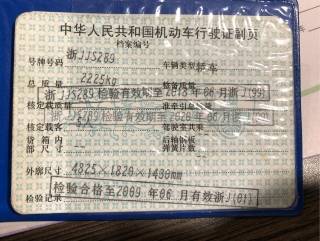 中华人民共和国机动车行驶证副页
档案编号
号牌号码 浙JJS289 车辆类型 轿车
总质量 2225kg 整备质量
浙JJS289 检验有效期至2018年06月浙J(99)
核定载质量 准牵引总
浙JJS289 检验有效期至2020年06月浙J
核定载客 5人 驾驶室共乘
货箱内部尺寸 后轴钢板弹簧片数
外廓尺寸 4825×1820×1480mm
检验记录 检验合格至2009年06月有效浙J(01)